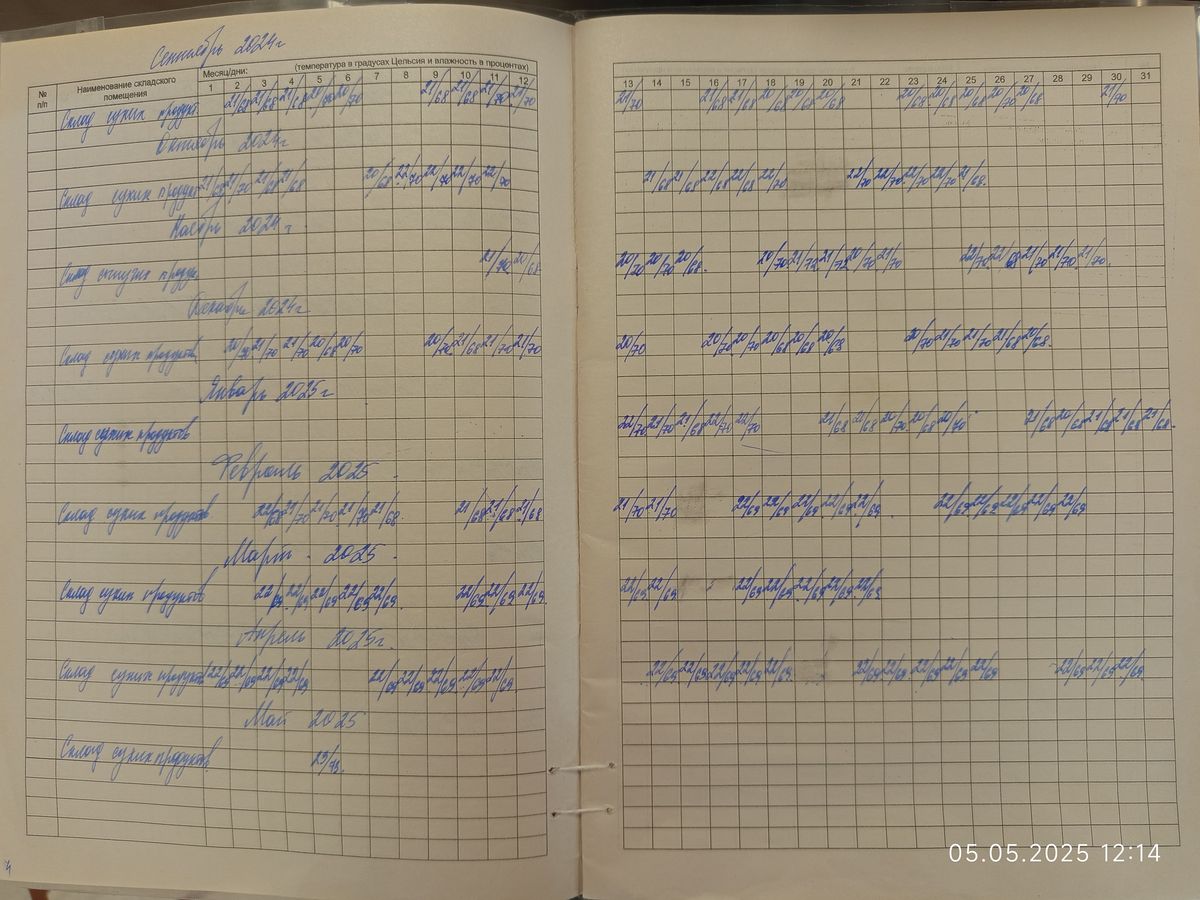 Сентябрь 2024г
№ п/п
Наименование складского помещения
Месяц/дни: (температура в градусах Цельсия и влажность в процентах)
1 2 3 4 5 6 7 8 9 10 11 12 13 14 15 16 17 18 19 20 21 22 23 24 25 26 27 28 29 30 31
Склад сухих продукт. 21/68 21/68 21/68 20/70 20/70 21/68 21/68 21/70 21/70 21/70 21/68 21/68 20/68 20/68 20/68 20/68 20/68 20/68 20/70 20/68 21/70
Октябрь 2024г
Склад сухих продукт 21/68 21/70 21/68 21/68 20/68 22/70 22/70 22/70 22/70 21/68 21/68 22/68 22/68 22/70 22/70 22/70 22/70 22/70 21/68
Ноябрь 2024г
Склад сыпучих продук. 21/70 20/68 20/70 20/70 20/68 20/70 21/72 21/72 20/70 21/70 22/70 22/68 21/70 21/70 21/70
Декабрь 2024г
Склад сухих продуктов 20/70 21/70 21/70 20/68 20/70 20/70 21/68 21/70 21/70 20/70 20/70 20/70 20/68 20/68 20/68 20/70 21/70 21/70 21/68 20/68
Январь 2025г
Склад сухих продуктов 22/70 21/70 21/68 22/70 22/70 21/68 21/68 20/70 20/68 20/70 21/68 20/68 21/68 21/68 21/68
Февраль 2025
Склад сухих продуктов 22/68 21/70 21/70 21/70 21/68 21/68 21/68 21/68 21/70 21/70 22/69 22/69 22/69 22/69 22/69 22/69 22/69 22/69 22/69 22/69
Март 2025
Склад сухих продуктов 22/69 22/69 22/69 22/69 22/69 22/69 22/69 22/69 22/69 22/69 22/69 22/69 22/69 22/69 22/69
Апрель 2025г.
Склад сухих продуктов 22/69 22/69 22/69 22/69 22/69 22/69 22/69 22/69 22/69 22/69 22/69 22/69 22/69 22/69 22/69 22/69 22/69 22/69 22/69 22/69 22/69 22/69
Май 2025
Склад сухих продуктов 23/73
4
05.05.2025 12:14